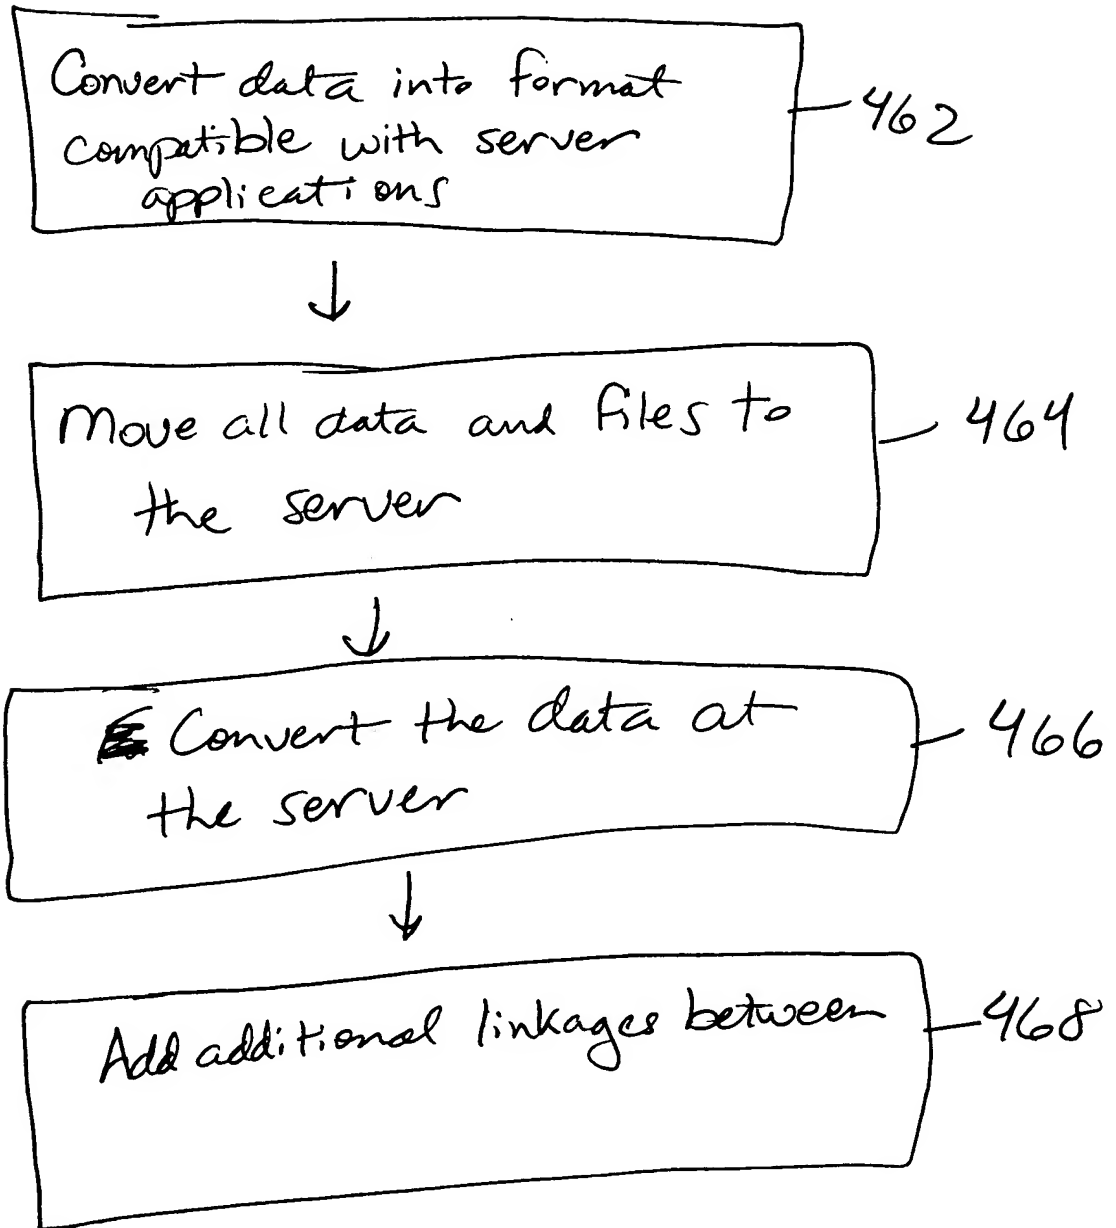 Convert data into format
compatible with server
applications
462
Move all data and files to
the server
464
Convert the data at
the server
466
Add additional linkages between
468